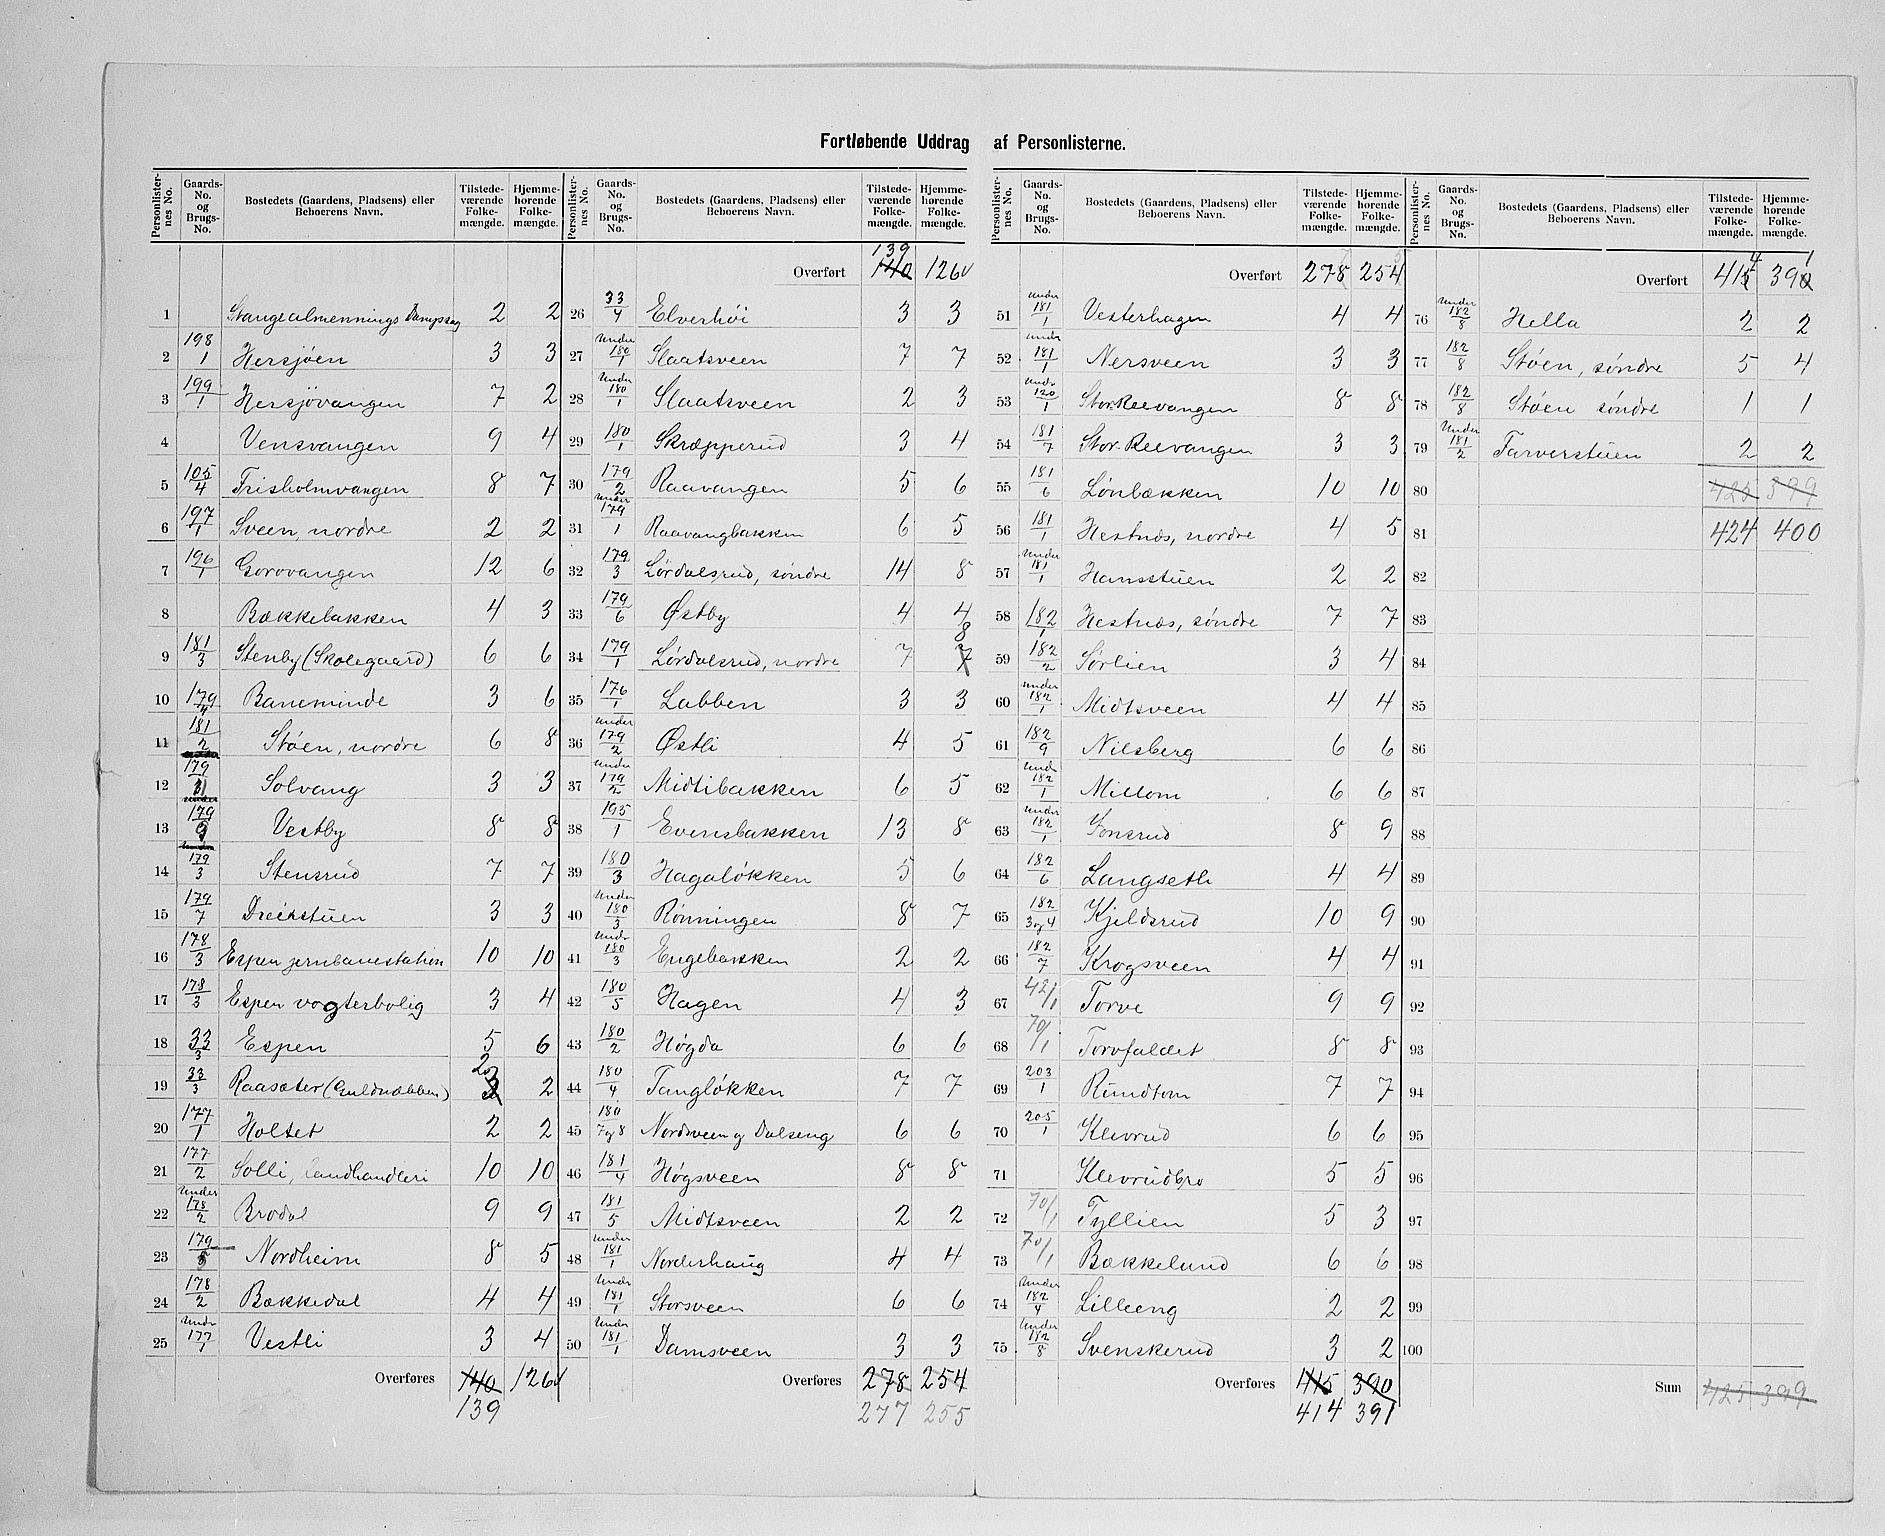 Fortløbende Uddrag af Personlisterne.
Personlisternes No. | Gaards-No. og Brugs-No. | Bostedets (Gaardens, Pladsens) eller Beboerens Navn. | Tilstedeværende Folkemængde. | Hjemmehørende Folkemængde.
1 Stangealmennings Dampsag 2 2
2 198/1 Hersjøen 3 3
3 199/1 Hersjövangen 7 2
4 Vensvangen 9 4
5 105/4 Frisholmvangen 8 7
6 197/1 Sveen, nordre 2 2
7 196/1 Gorovangen 12 6
8 Bækkebakken 4 3
9 181/3 Stenby (Skolegaard) 6 6
10 179/4 Baneminde 3 6
11 181/2 Støen, nordre 6 8
12 179/ Solvang 3 3
13 179/9 Vestby 8 8
14 under 179/3 Stensrud 7 7
15 179/7 Dreierstuen 3 3
16 178/3 Espen jernbanestation 10 10
17 178/3 Espen vogterbolig 3 4
18 33/3 Espen 5 6
19 33/3 Raasæter (Guldnæbben) 3 2 2
20 177/1 Holtet 2 2
21 177/2 Solli, landhandleri 10 10
22 Under 178/2 Brodal 9 9
23 179/5 Nordheim 8 5
24 178/2 Bækkedal 4 4
25 Undr 177/1 Vestli 3 4
Overføres 140 126
139
Personlisternes No. | Gaards-No. og Brugs-No. | Bostedets (Gaardens, Pladsens) eller Beboerens Navn. | Tilstedeværende Folkemængde. | Hjemmehørende Folkemængde.
139
Overført 140 126
26 33/4 Elverhöi 3 3
27 Under 180/1 Slaatsveen 7 7
28 Under 180/1 Slaatsveen 2 3
29 180/1 Skræpperud 3 4
30 179/2 Raavangen 5 6
31 under 179/1 Raavangbakken 6 5
32 179/3 Lørdalsrud, søndre 14 8
33 179/6 Østby 4 4
34 179/1 Lørdalsrud, nordre 7 7 8
35 176/1 Labben 3 3
36 under 179/2 Østli 4 5
37 under 179/2 Midtibakken 6 5
38 195/1 Evensbakken 13 8
39 180/3 Hagaløkken 5 6
40 Under 180/3 Rønningen 8 7
41 Undr 180/3 Engebakken 2 2
42 180/5 Hagen 4 3
43 180/2 Høgda 6 6
44 180/4 Tangløkken 7 7
45 180/7og8 Nordsveen og Dalseng 6 6
46 181/4 Høgsveen 8 8
47 181/5 Midtsveen 2 2
48 under 181/1 Norderhaug 4 4
49 Undr 181/1 Storsveen 6 6
50 Undr 181/1 Damsveen 3 3
Overføres 278 254
277 255
Personlisternes No. | Gaards-No. og Brugs-No. | Bostedets (Gaardens, Pladsens) eller Beboerens Navn. | Tilstedeværende Folkemængde. | Hjemmehørende Folkemængde.
Overført 278 254
51 under 181/1 Vesterhagen 4 4
52 undr 181/1 Nersveen 3 3
53 Undr 120/1 StorReevangen 8 8
54 181/7 Stor-Reevangen 3 3
55 181/6 Lønbækken 10 10
56 181/1 Hestnæs, nordre 4 5
57 Under 181/1 Hansstuen 2 2
58 182/1 Hestnæs, søndre 7 7
59 182/2 Sørlien 3 4
60 under 182/1 Midtsveen 4 4
61 182/9 Nilsberg 6 6
62 Undr 182/1 Millom 6 6
63 under 182/1 Jonsrud 8 9
64 182/6 Langseth 4 4
65 182/3og4 Kjeldsrud 10 9
66 182/7 Krogsveen 4 4
67 42/1 Torve 9 9
68 70/1 Torvfaldet 8 8
69 203/1 Rundtom 7 7
70 205/1 Klevrud 6 6
71 Klevrudbro 5 5
72 70/1 Tyllien 5 3
73 70/1 Bækkelund 6 6
74 Under 182/4 Lilleeng 2 2
75 Under 182/8 Svenskerud 3 2
Overføres 415 390
414 391
Personlisternes No. | Gaards-No. og Brugs-No. | Bostedets (Gaardens, Pladsens) eller Beboerens Navn. | Tilstedeværende Folkemængde. | Hjemmehørende Folkemængde.
4 1
Overført 415 390
76 Under 182/8 Hella 2 2
77 182/8 Støen, søndre 5 4
78 182/8 Støen søndre 1 1
79 Under 181/2 Farverstuen 2 2
80 425 399
81 424 400
82
83
84
85
86
87
88
89
90
91
92
93
94
95
96
97
98
99
100
Sum 425 399